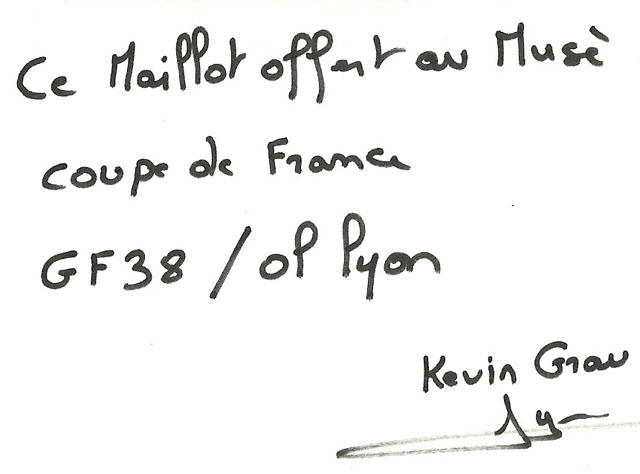 Ce Maillot offert au Musè
coupe de France
GF38 / ol lyon
Kevin Grau